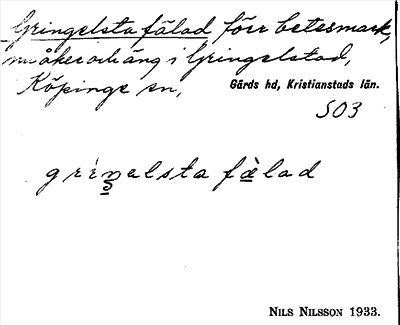 Gringelsta fälad förr betesmark,
nu åker och äng i Gringelstad,
Köpinge sn, Gärds hd, Kristianstads län.
SO3
griŋelsta fælad
NILS NILSSON 1933.